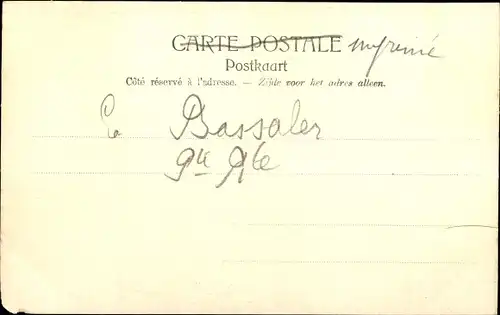 CARTE POSTALE imprimé
Postkaart
Côté réservé à l'adresse. — Zijde voor het adres alleen.
Bassaler